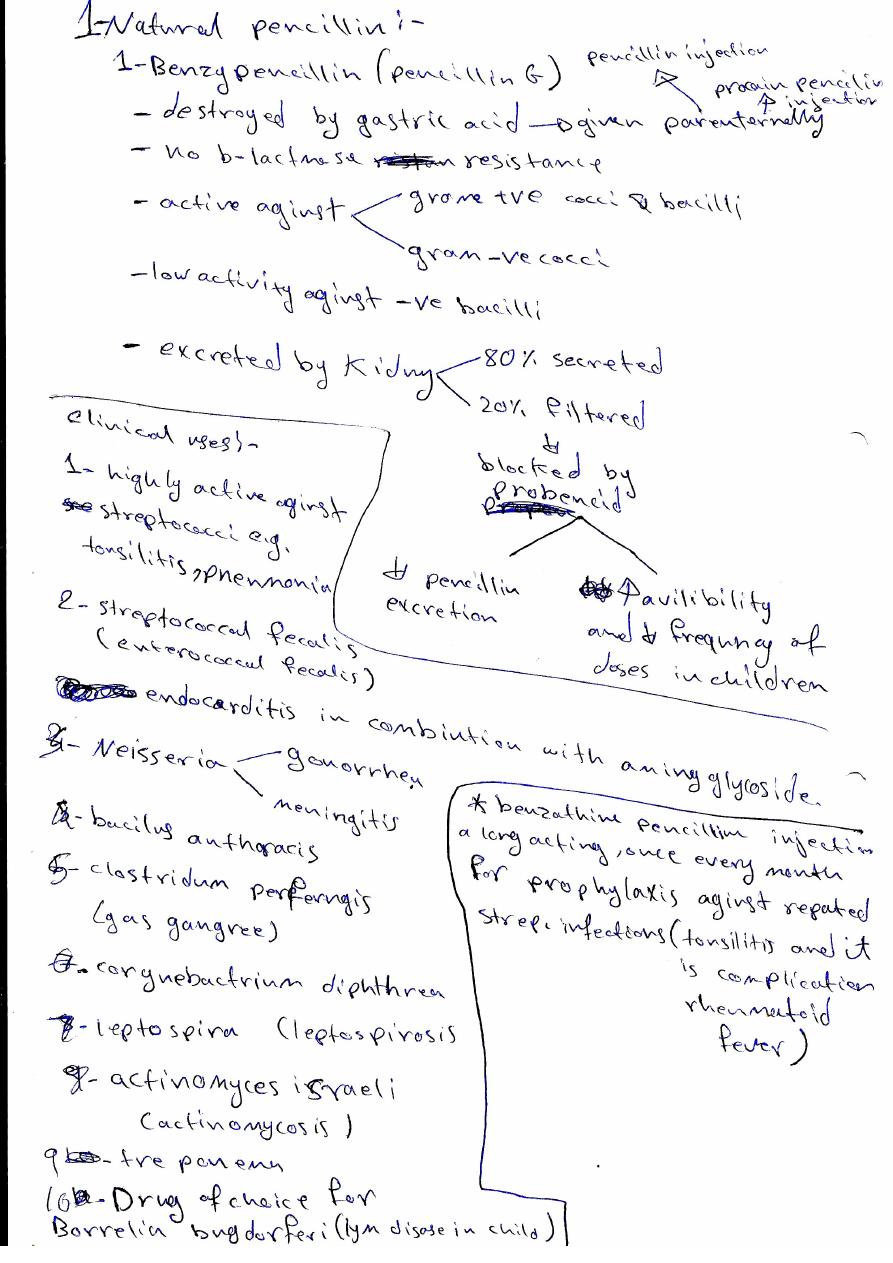 1-Natural pencillin:-
1-Benzypencillin (pencillin G)
pencillin injection
procain pencilin
injection
- destroyed by gastric acid → given parenternelly
- no b-lactmase resistance
- active aginst
grame +ve cocci & bacilli
gram -ve cocci
- low activity aginst -ve bacilli
- excreted by Kidny
80% secreted
20% filtered
↓
blocked by
probencid
↓ pencillin
excretion
↑ avilibility
and ↓ frequncy of
doses in children
clinical uses:-
1- highly active aginst
streptococci e.g.
tonsilitis, pnenmonia
2- streptococcal fecalis
(enterococcal fecalis)
endocarditis in combintion with aminglycoside.
3- Neisseria
gonorrhea
meningitis
4- bacilus anthoracis
5- clostridum perferngis
(gas gangree)
6- corynebactrium diphthrea
7- leptospira (leptospirosis
8- actinomyces israeli
(actinomycosis)
9 - tre ponema
10 - Drug of choice for
Borrelia bugdorferi (lym disase in child)
* benzathine pencillin injection
a long acting, once every month
for prophylaxis aginst repated
strep. infections (tonsilitis and it
is complication
rhenmatoid
fever)